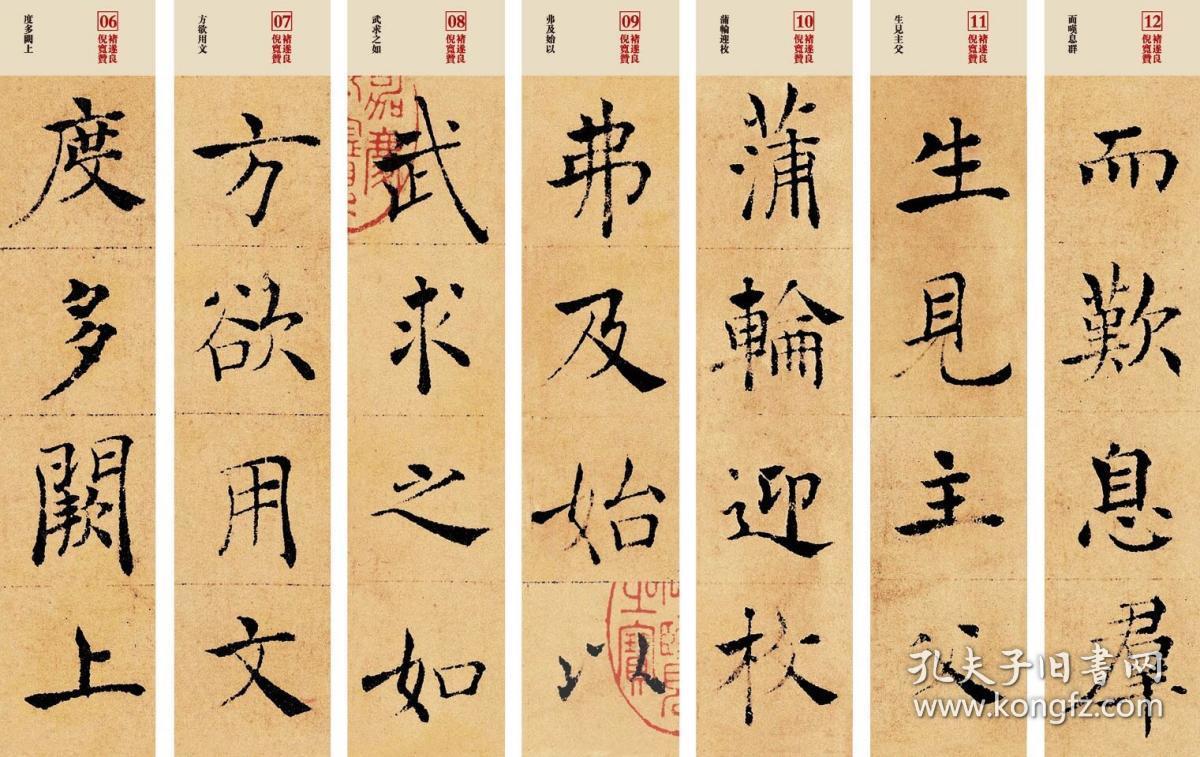 06
褚遂良
倪寬贊
度多闕上
度多闕上
07
褚遂良
倪寬贊
方欲用文
方欲用文
08
褚遂良
倪寬贊
武求之如
武求之如
09
褚遂良
倪寬贊
弗及始以
弗及始以
10
褚遂良
倪寬贊
蒲輪迎枚
蒲輪迎枚
11
褚遂良
倪寬贊
生見主父
生見主父
12
褚遂良
倪寬贊
而嘆息群
而歎息羣
孔夫子旧书网
www.kongfz.com